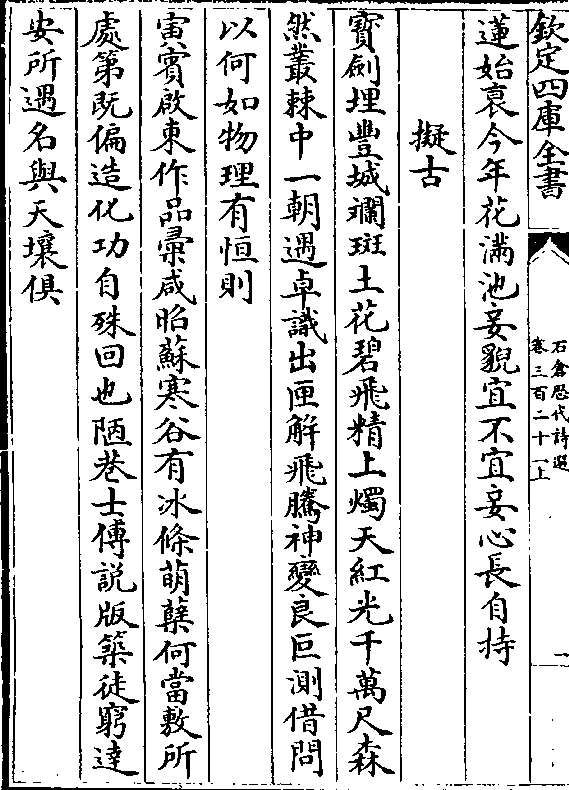 欽定四庫全書
石倉歷代詩選
卷三百二十一上
一
蓮始衰今年花滿池妾貌宜不宜妾心長自持
擬古
寶劍埋豐城斕斑土花碧飛精上燭天紅光千萬尺森
然叢棘中一朝遇卓識出匣解飛騰神變良叵測借問
以何如物理有恒則
寅賓啟東作品彚咸昭蘇寒谷有冰條萌蘖何當敷所
處第既偏造化功自殊回也陋巷士傅說版築徒窮達
安所遇名與天壤俱